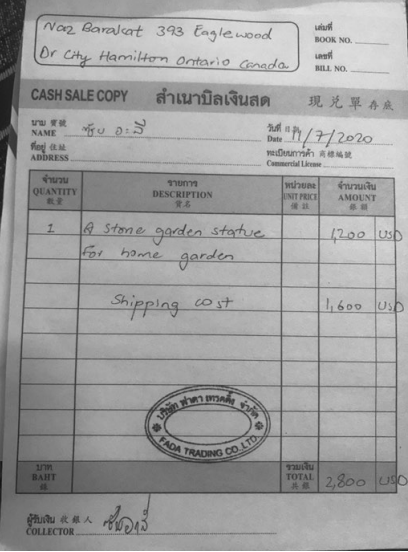 Naz Barakat 393 Eaglewood
Dr City Hamilton Ontario Canada
เล่มที่
BOOK NO.
เลขที่
BILL NO.
CASH SALE COPY สำเนาบิลเงินสด 現兑單存底
นาม 寶號
NAME
วันที่
Date 11/7/2020
ที่อยู่ 住址
ADDRESS
ทะเบียนการค้า 商標編號
Commercial License
จำนวน รายการ หน่วยละ จำนวนเงิน
QUANTITY DESCRIPTION UNIT PRICE AMOUNT
數量 貨名 價錢 銀額
1 A stone garden statue 1,200 USD
For home garden
Shipping cost 1,600 USD
บริษัท ฟาดา เทรดดิ้ง จำกัด
FADA TRADING CO.,LTD.
บาท รวมเงิน
BAHT TOTAL 2,800 USD
銖 共銀
ผู้รับเงิน 收銀人
COLLECTOR